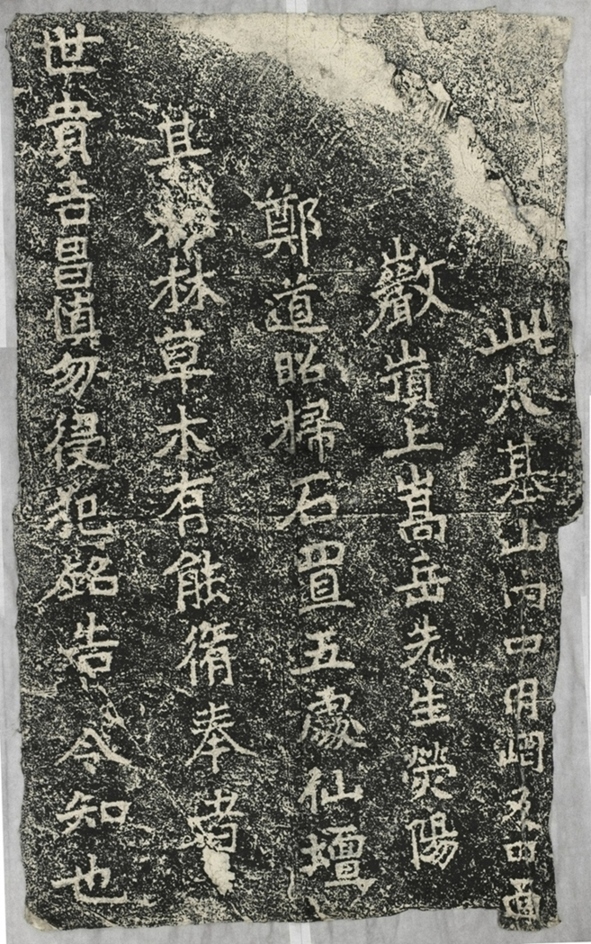 此太基山内中明崗及四面
巖嵿上嵩岳先生熒陽
鄭道昭掃石置五處仙壇
其松林草木有能脩奉者
世貴吉昌慎勿侵犯銘告令知也